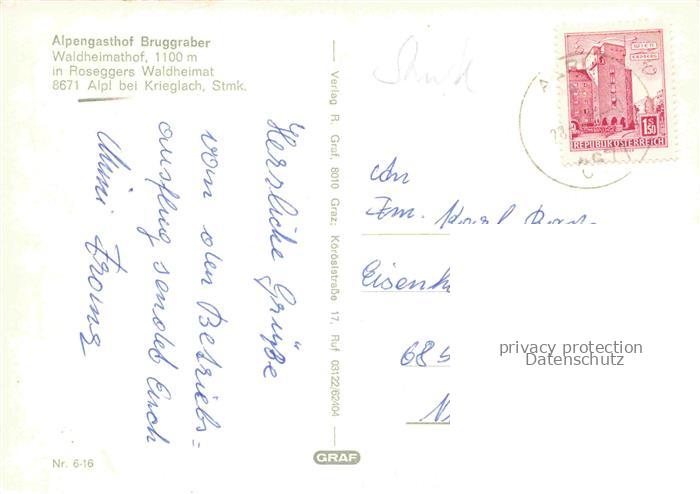 Alpengasthof Bruggraber
Waldheimathof, 1100 m
in Roseggers Waldheimat
8671 Alpl bei Krieglach, Stmk.
Herrliche Grüße
vom den Betriebs=
ausflug sendet Euch
Mimi
Verlag R. Graf, 8010 Graz; Körösistraße 17, Ruf 03122/62404
GRAF
Nr. 6-16
WIEN
ERDBERG
1.50
REPUBLIK ÖSTERREICH
An
Fm. Karl
68
privacy protection
Datenschutz